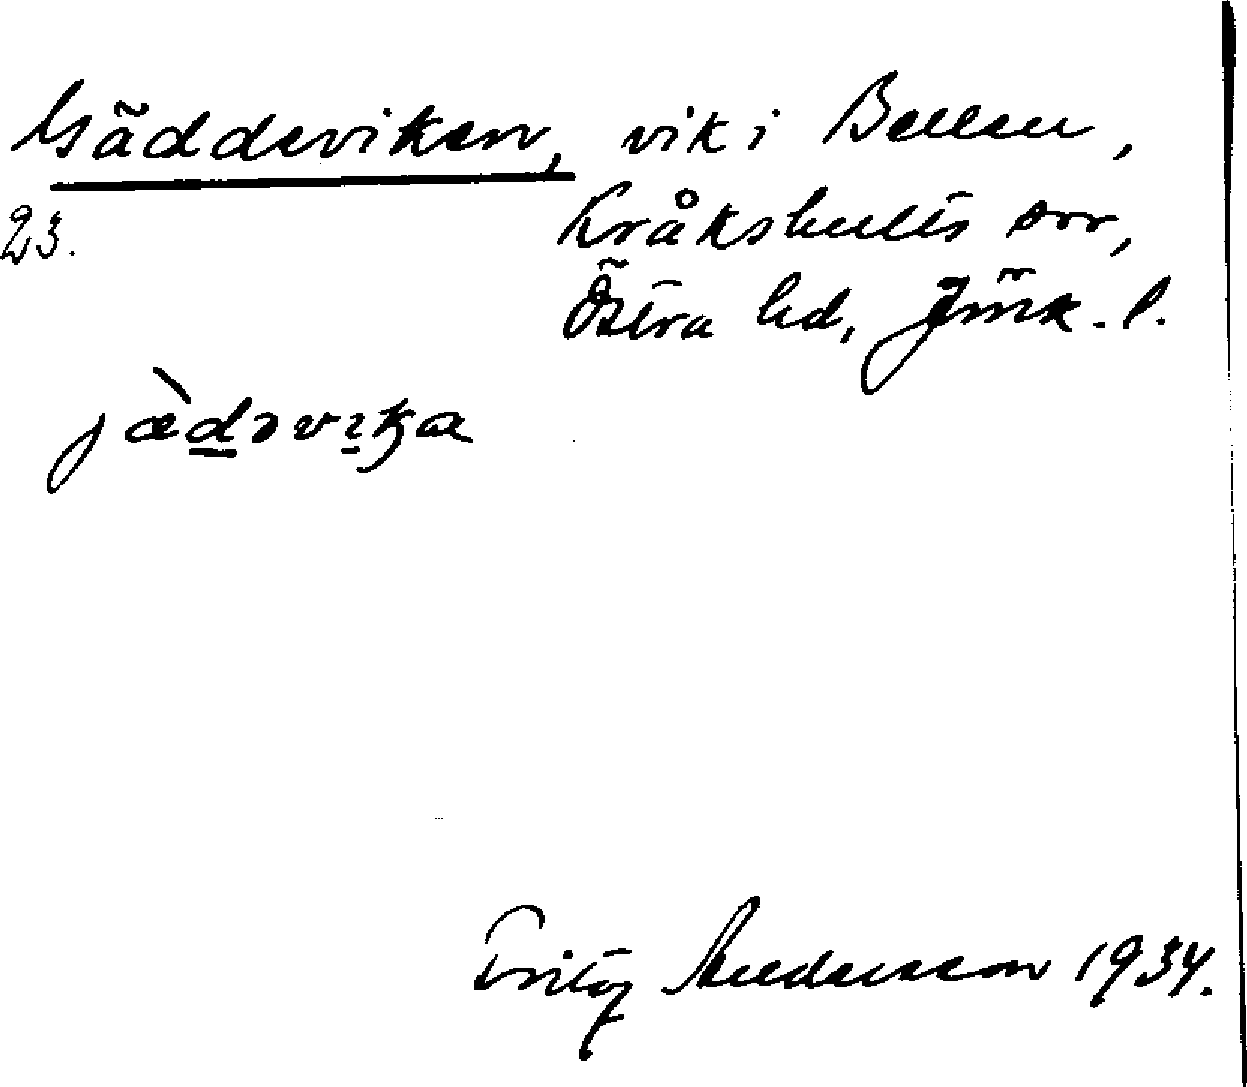 Gäddeviken, vik i Bellen,
23. Kråkshults sn,
Östra hd, Jönk. l.
jæ̀dəvika
Fritz Andersson 1934.